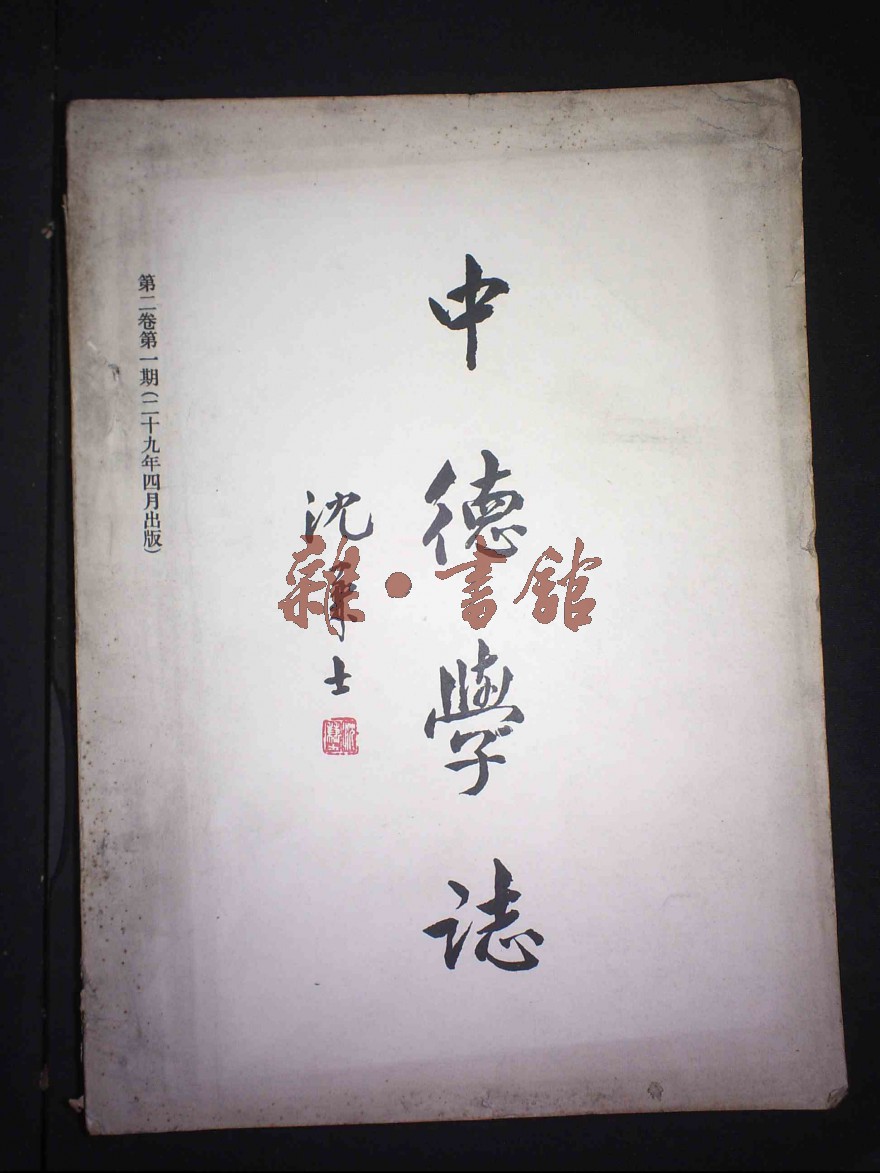 中德學誌
沈兼士
第二卷第一期(二十九年四月出版)
雜·書館